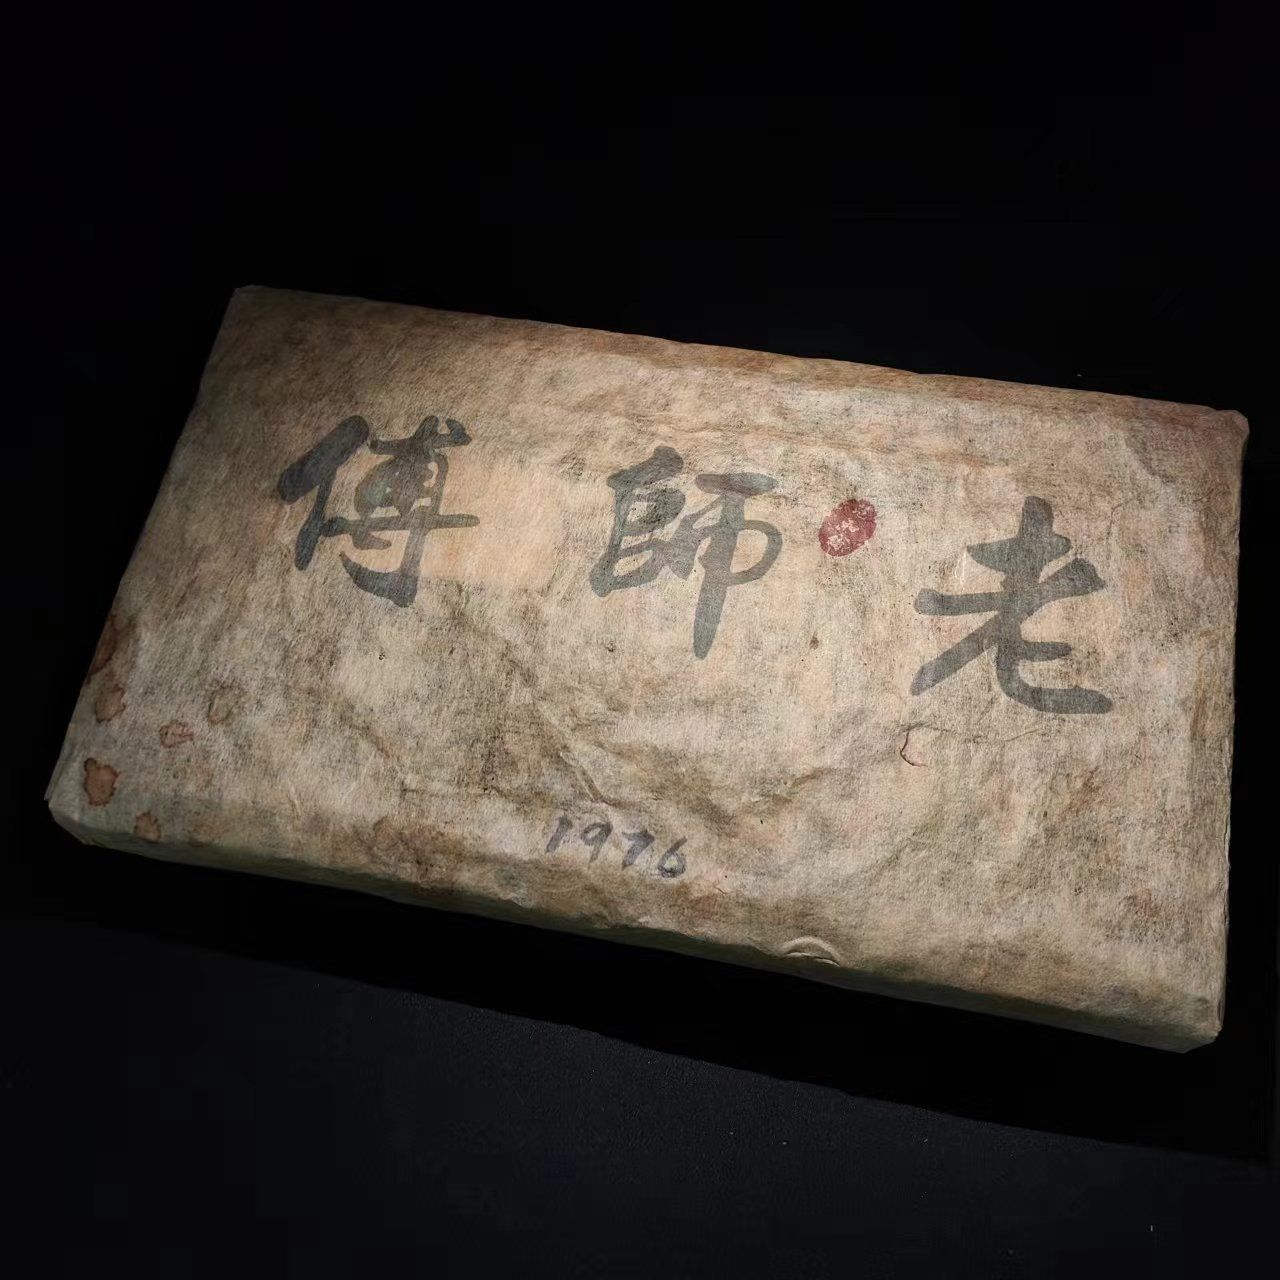 老師傅
1976